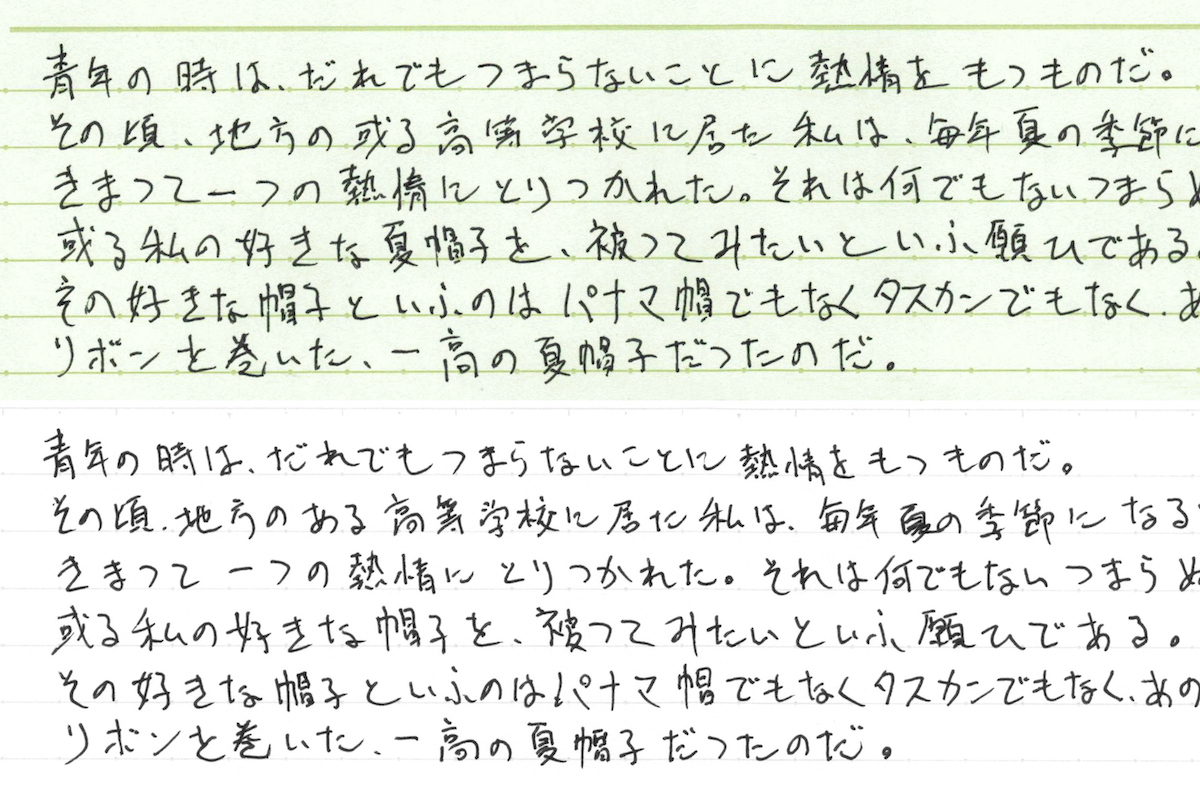 青年の時は、だれでもつまらないことに熱情をもつものだ。
その頃、地方の或る高等学校に居た私は、毎年夏の季節に
きまつて一つの熱情にとりつかれた。それは何でもないつまらぬ
或る私の好きな夏帽子を、被つてみたいといふ願ひである。
その好きな帽子といふのはパナマ帽でもなくタスカンでもなく、あ
リボンを巻いた、一高の夏帽子だつたのだ。
青年の時は、だれでもつまらないことに熱情をもつものだ。
その頃、地方のある高等学校に居た私は、毎年夏の季節になる
きまつて一つの熱情にとりつかれた。それは何でもないつまらぬ
或る私の好きな帽子を、被つてみたいといふ願ひである。
その好きな帽子といふのはパナマ帽でもなくタスカンでもなく、あの
リボンを巻いた、一高の夏帽子だつたのだ。